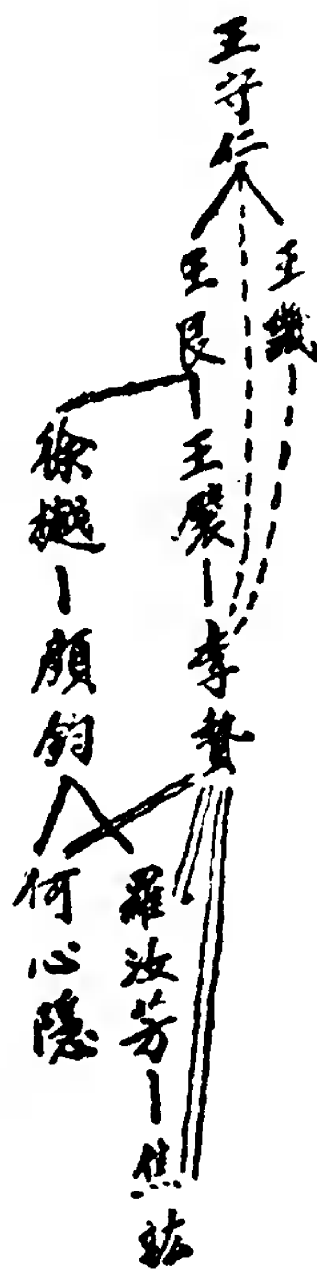 王守仁
王艮
王畿
徐樾
王襞
顏鈞
李贄
何心隱
羅汝芳
焦竑